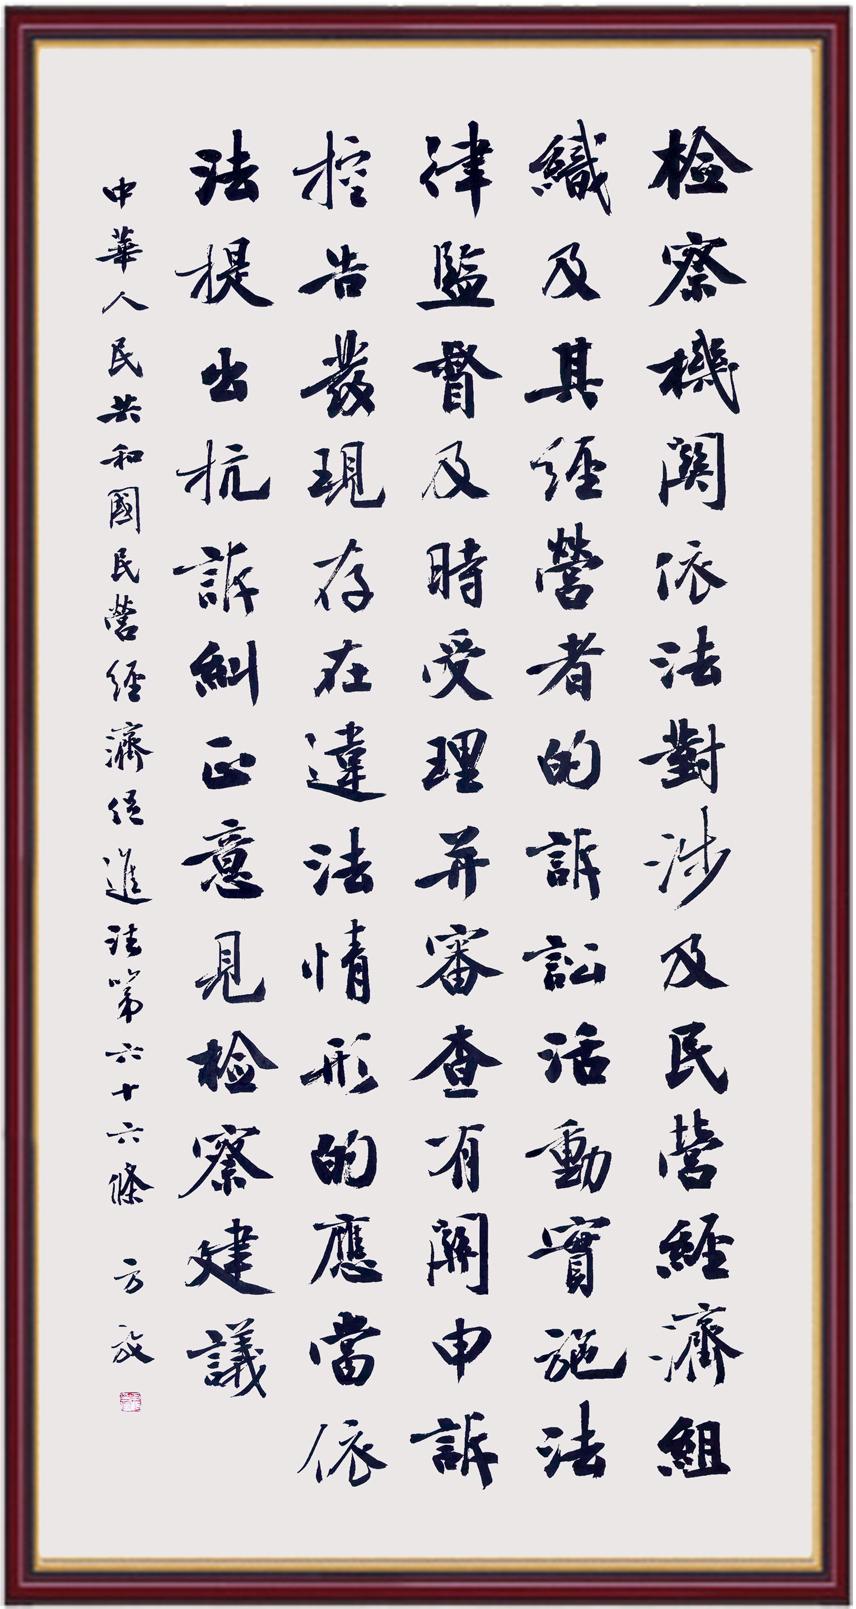 检察機関依法對涉及民營經濟組
織及其經營者的訴訟活動實施法
律監督及時受理并審查有関申訴
控告發現存在違法情形的應當依
法提出抗訴糾正意見检察建議
中華人民共和國民營經濟促進法第六十六條
方放